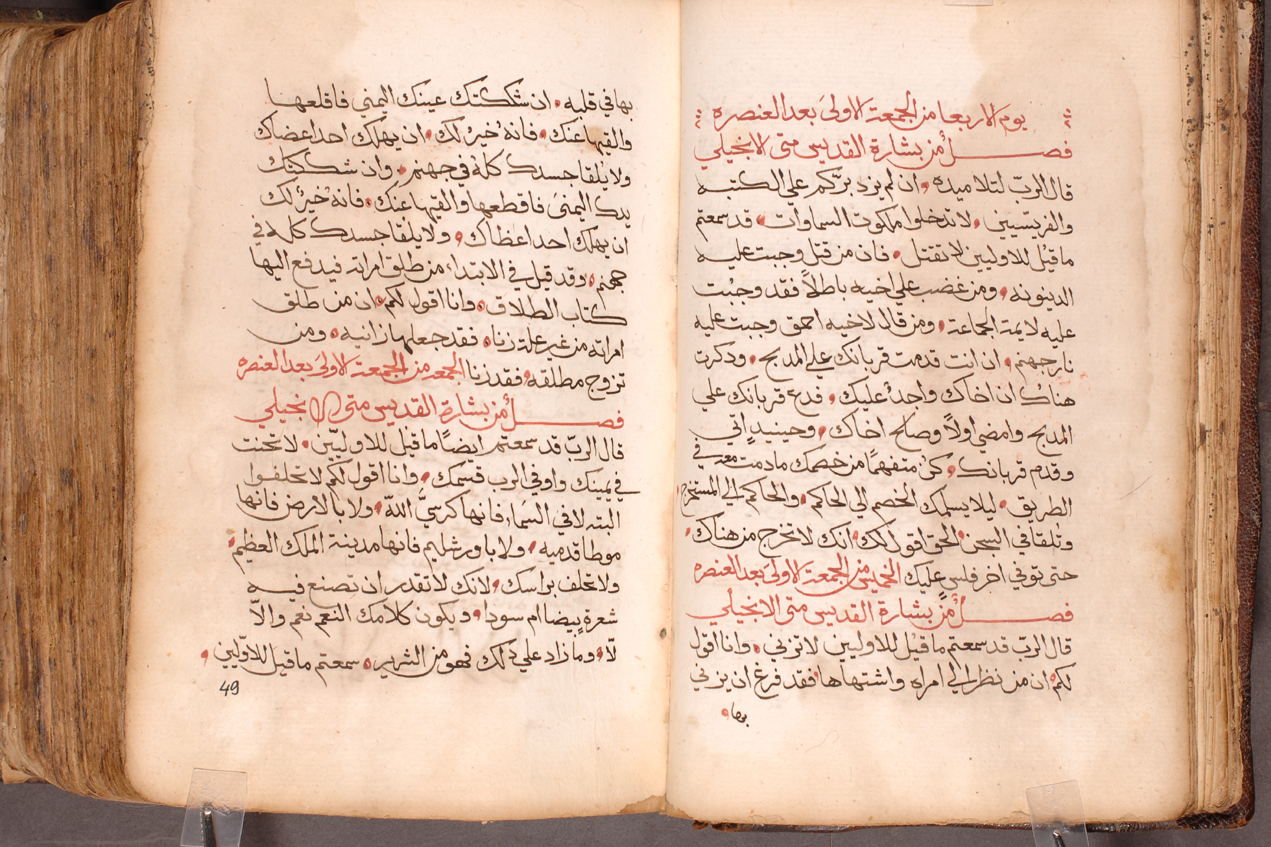 يوم الاربعا من الجمعة الاولىَ بعد العنصره
فصل من بشارة القديس متى الانجيلي
قال الربّ لتلاميده ان لم يزد برّكم علي الكتبه
والفريسيين لا تدخلوا ملكوت السماوات قد سمعتم
ما قيُل للاوليين لا تقتل فان من قتل وجبت عليه
الدينونه ومن غضب علي اخيه باطلاً فقد وجبُت
عليه لايمة الجماعة ومن قال لاخيه احمق وجبت عليه
نار جهنم ان انت قدمت قربانك علي المدبح ودكرت
هناك ان اخاك واجدُ عليك فدع قربانك علي
المدبح وامضي اولاً وصالح اخاك وحينيدٍ اتي
وقدم قربانك كن متفهماً من خصمك ما دمت معه في
الطريق ليلا يسلمك الخصم الي الحاكم والحاكم الي المستخرج
وتلقا في السجن الحق اقول لك انك لا تخرج من هناك
حتى توفي اخر فلس عليك الخميس من الجمعة الاولىَ بعد العنصره
فصل من بشارة القديس متى الانجيلي
قال الربّ قد سمعتم ما قيُل للاوليين لا تزني وانا اقول
لكم ان من نظر الي امراه واشتهاها فقد فرغ ان يزني
بها
بها في قلبه ان شككتك عينك اليمني فاقلعها
والقيها عنك فانه خيرُ لك ان يهلك احد اعضاك
ولا يلقا جسدك كله في جهنم وان شككتك
يدك اليمنىُ فاقطعها والقيها عنك فانه خيرُ لك
ان يهلك احد اعظاك ولا يلقا جسدك كله في
جهنم وقد قيل في الابتداء من طلق امراته فيدفع اليها
كتاب الطلاق وانا اقول لكم ان من طلق
امراته من غير علة زنا فقد جعلها زانيه ومن
تزوج مطلقه فقد زنا الجمعه من الجمعة الاولىَ بعد العنصره
فصل من بشارة القديس متى الانجيلي
قال الربّ قد سمعتم ايضاً ما قيل للاوليّين لا تحنت
في يمينك واوفي الرب قسمك وانا اقول لكم لا تحلفوا
البته لا في السماء فانها كرسيُّ اللّه ولا بالارض فانها
موطا قدميه ولا باورشليم فانها مدينة الملك العظيم
ولا تحلف براسك لانك لا تقدر ان تصنع فيه
شعرة بيضا ام سودا ويكون كلامك النعم نعم والاّ
لاّ وما زاد علي دلك فهو من الشرير سمعتم ما قيل للاوّليين
49